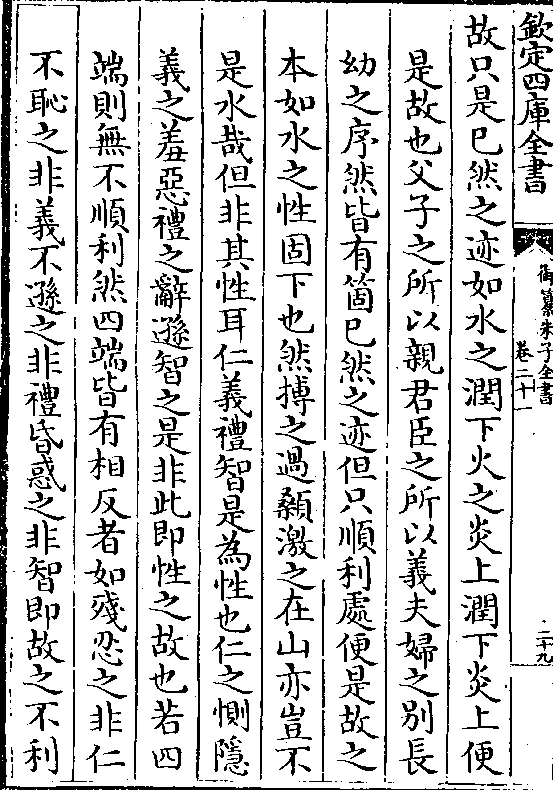 欽定四庫全書
御纂朱子全書
卷二十一
二十九
故只是已然之迹如水之潤下火之炎上潤下炎上便
是故也父子之所以親君臣之所以義夫婦之別長
幼之序然皆有箇已然之迹但只順利處便是故之
本如水之性固下也然搏之過顙激之在山亦豈不
是水哉但非其性耳仁義禮智是為性也仁之惻隱
義之羞惡禮之辭遜智之是非此即性之故也若四
端則無不順利然四端皆有相反者如殘忍之非仁
不恥之非義不遜之非禮昏惑之非智即故之不利